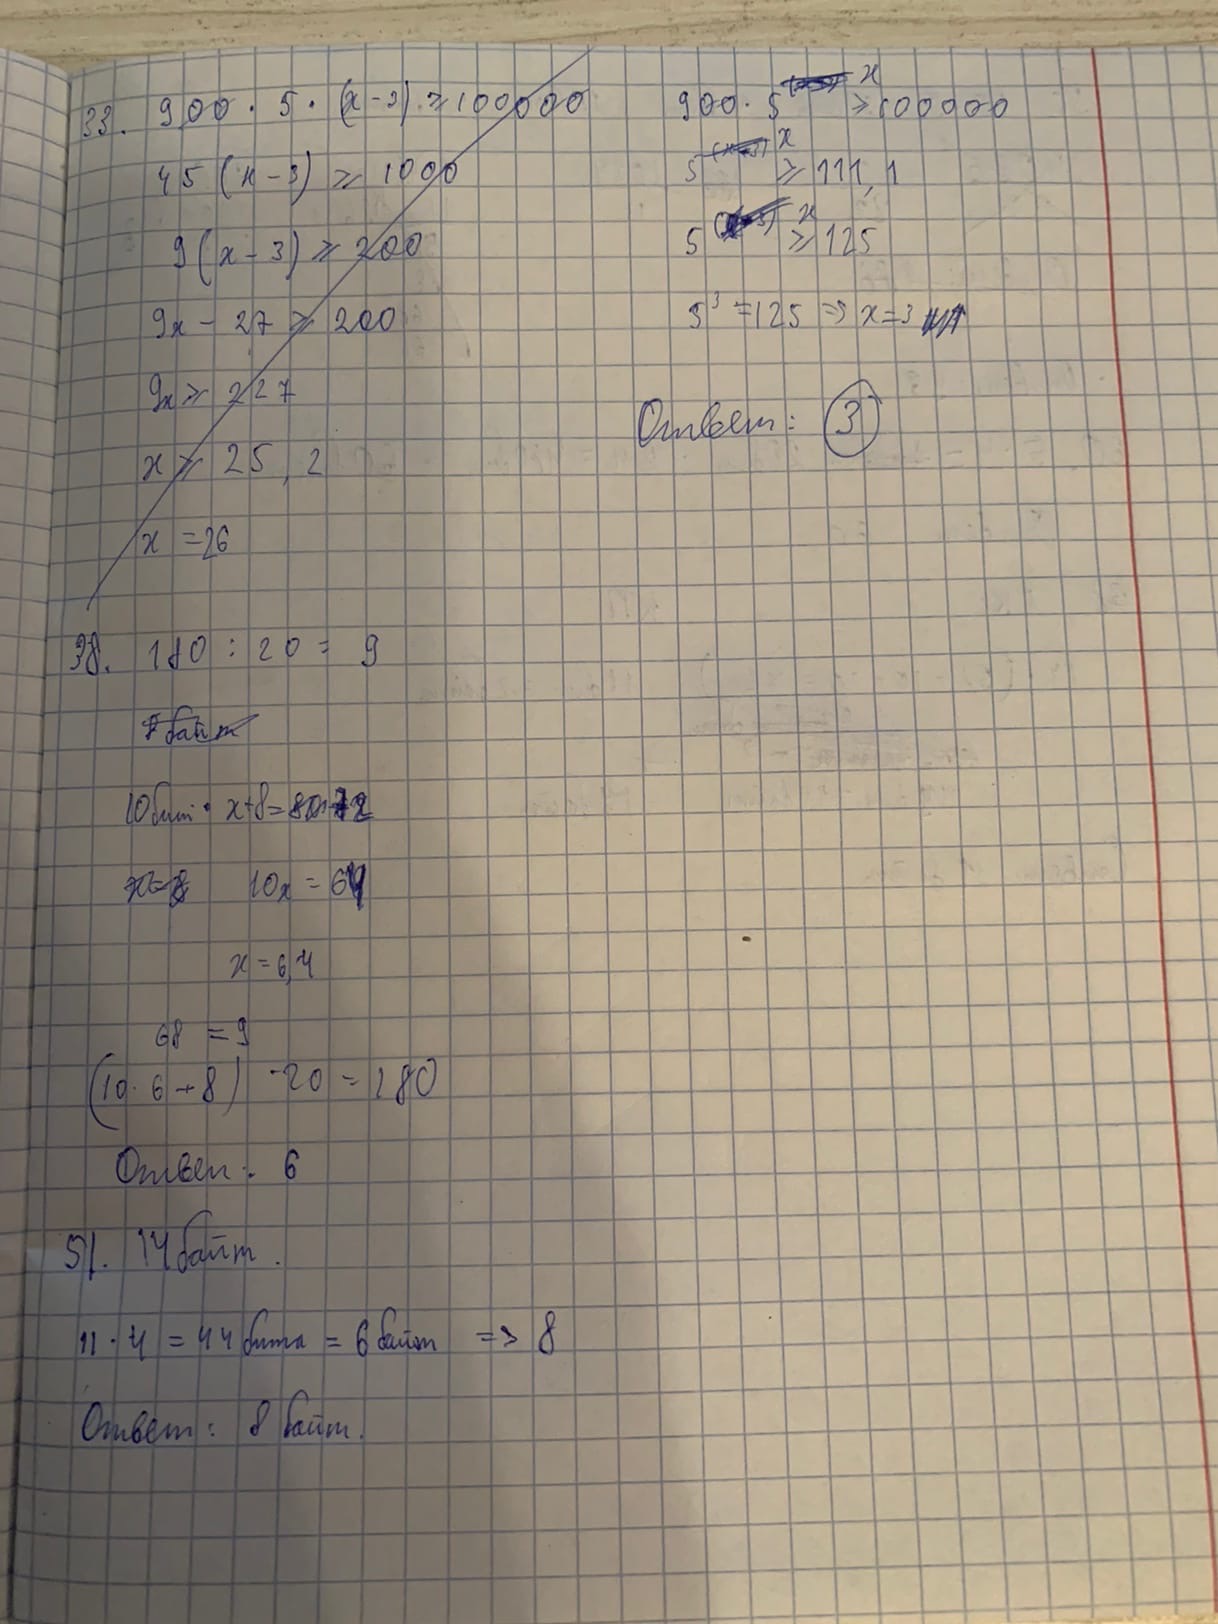 33. 900 · 5 · (x-3) ⩾ 100000
45 (x-3) ⩾ 1000
9(x-3) ⩾ 200
9x - 27 ⩾ 200
9x ⩾ 227
x ⩾ 25,2
x = 26
900 · 5^x ⩾ 100000
5^x ⩾ 111,1
5^x ⩾ 125
5^3 = 125 => x=3
Ответ: 3
38. 180 : 20 = 9
байт
10бит · x+8=
10x = 64
x = 6,4
68 = 9
(10 · 6 + 8) · 20 = 180
Ответ: 6
51. 14 байт.
11 · 4 = 44 бита = 6 байт => 8
Ответ: 8 байт.